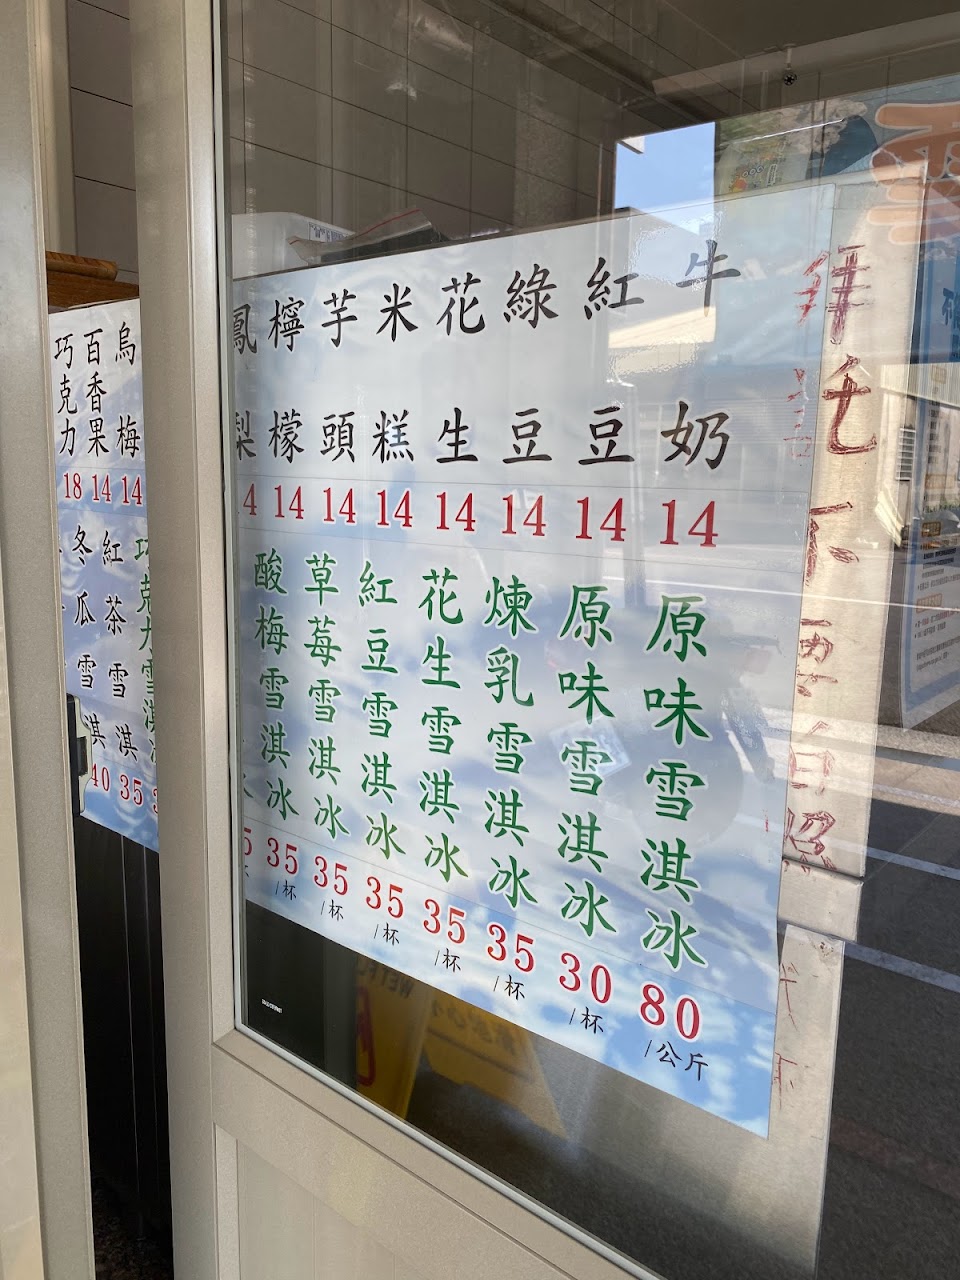 牛奶 14
紅豆 14
綠豆 14
花生 14
米糕 14
芋頭 14
檸檬 14
鳳梨 4
原味雪淇冰 80/公斤
原味雪淇冰 30/杯
煉乳雪淇冰 35/杯
花生雪淇冰 35/杯
紅豆雪淇冰 35/杯
草莓雪淇冰 35/杯
酸梅雪淇冰 35/杯
冰 5
烏梅 14
百香果 14
巧克力 18
巧克力雪淇
紅茶雪淇 35
冬瓜雪淇 40